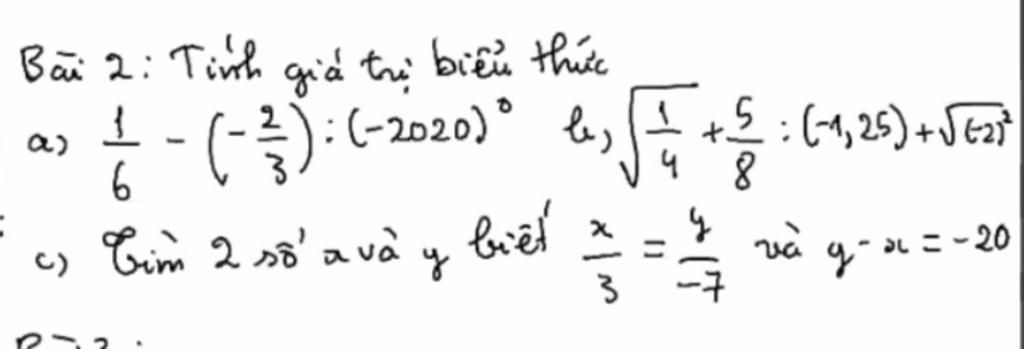 Bài 2: Tính giá trị biểu thức
a) 1/6 - (-2/3) : (-2020)^0 b, √(1/4) + 5/8 : (-1,25) + √(-2)²
c) Tìm 2 số x và y biết x/3 = y/-7 và y - x = -20